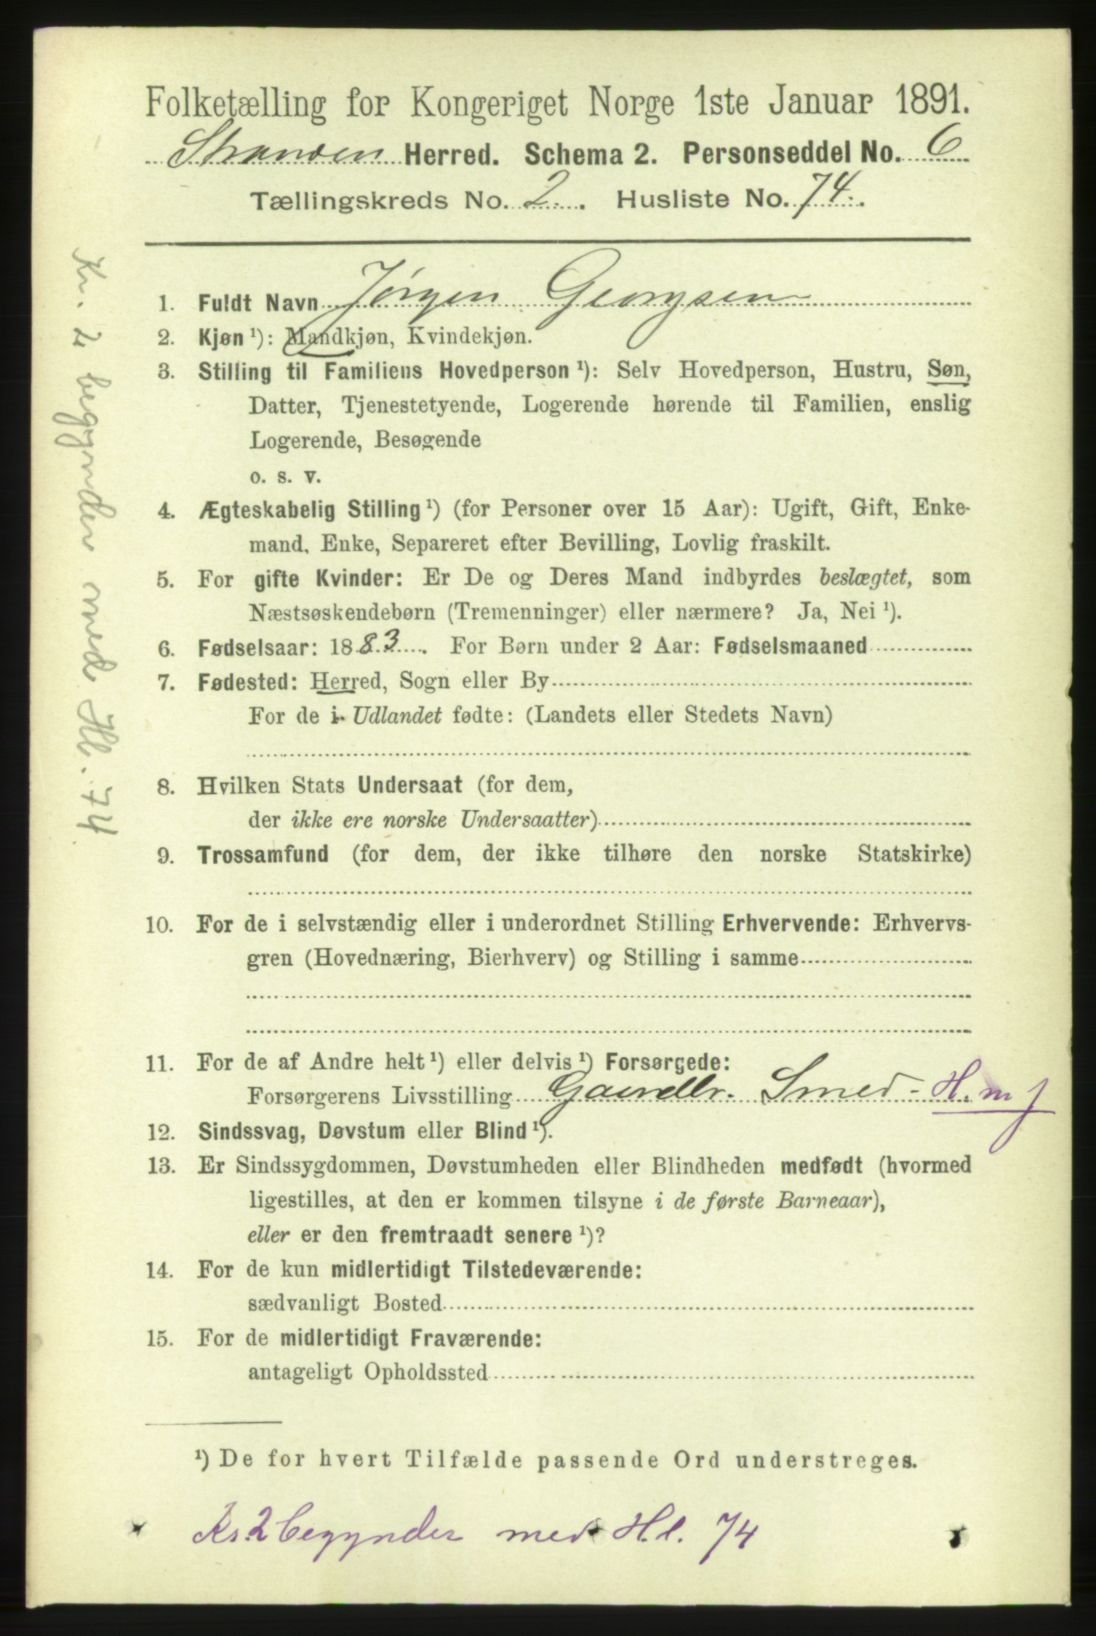 Folketælling for Kongeriget Norge 1ste Januar 1891.
Stranden Herred. Schema 2. Personseddel No. 6
Tællingskreds No. 2. Husliste No. 74.
1. Fuldt Navn Jørgen Georgsen
2. Kjøn ¹): Mandkjøn, Kvindekjøn.
3. Stilling til Familiens Hovedperson ¹): Selv Hovedperson, Hustru, Søn,
Datter, Tjenestetyende, Logerende hørende til Familien, enslig
Logerende, Besøgende
o. s. v.
4. Ægteskabelig Stilling ¹) (for Personer over 15 Aar): Ugift, Gift, Enke-
mand, Enke, Separeret efter Bevilling, Lovlig fraskilt.
5. For gifte Kvinder: Er De og Deres Mand indbyrdes beslægtet, som
Næstsøskendebørn (Tremenninger) eller nærmere? Ja, Nei ¹).
6. Fødselsaar: 1883. For Børn under 2 Aar: Fødselsmaaned
7. Fødested: Herred, Sogn eller By
For de i Udlandet fødte: (Landets eller Stedets Navn)
8. Hvilken Stats Undersaat (for dem,
der ikke ere norske Undersaatter)
9. Trossamfund (for dem, der ikke tilhøre den norske Statskirke)
10. For de i selvstændig eller i underordnet Stilling Erhvervende: Erhvervs-
gren (Hovednæring, Bierhverv) og Stilling i samme
11. For de af Andre helt ¹) eller delvis ¹) Forsørgede:
Forsørgerens Livsstilling Gaardbr. Smed - H. m j
12. Sindssvag, Døvstum eller Blind ¹).
13. Er Sindssygdommen, Døvstumheden eller Blindheden medfødt (hvormed
ligestilles, at den er kommen tilsyne i de første Barneaar),
eller er den fremtraadt senere ¹)?
14. For de kun midlertidigt Tilstedeværende:
sædvanligt Bosted
15. For de midlertidigt Fraværende:
antageligt Opholdssted
¹) De for hvert Tilfælde passende Ord understreges.
Kr. 2 begynder med Hl. 74
Kr. 2 begynder med Hl. 74